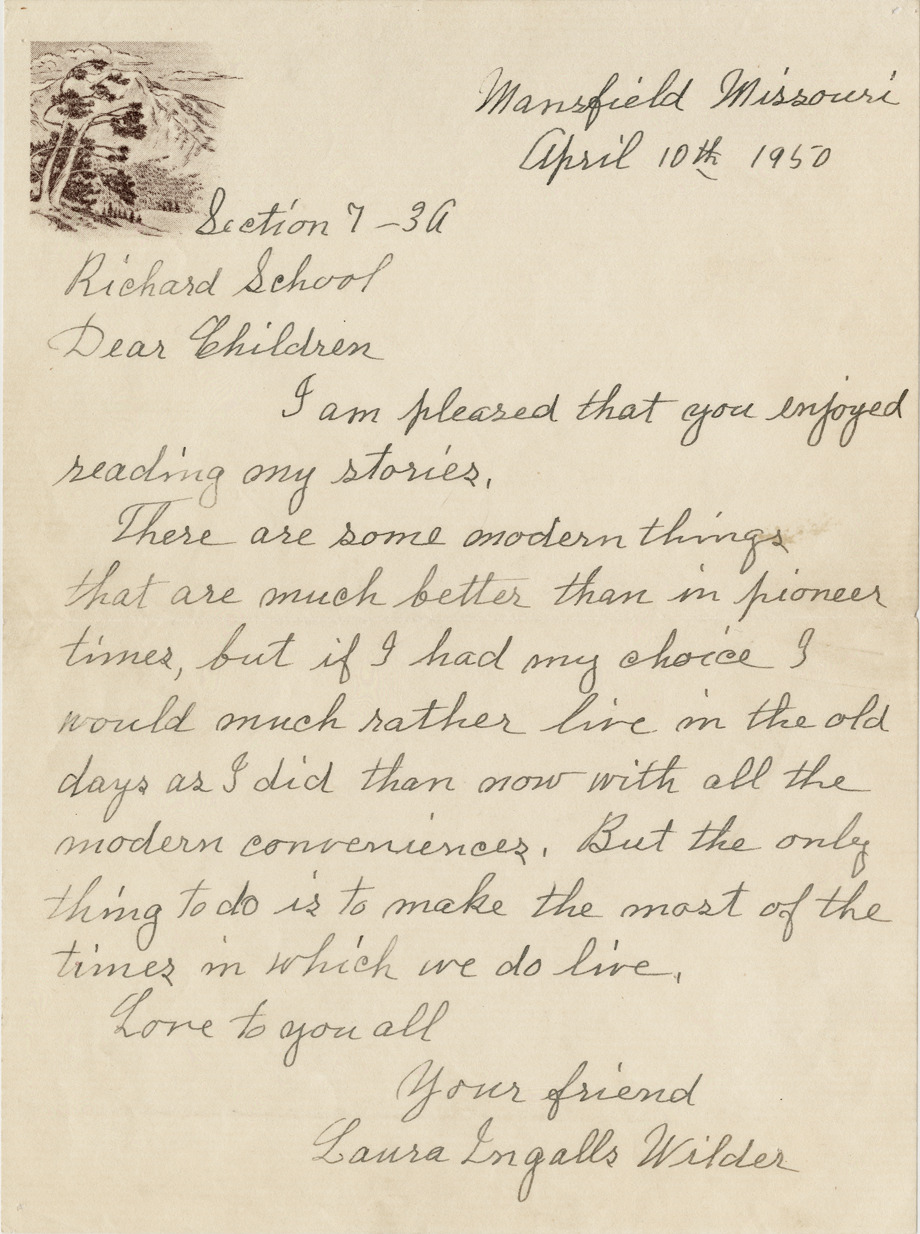 Mansfield Missouri
April 10th 1950
Section 7-3A
Richard School
Dear Children
I am pleased that you enjoyed
reading my stories.
There are some modern things
that are much better than in pioneer
times, but if I had my choice I
would much rather live in the old
days as I did than now with all the
modern conveniences. But the only
thing to do is to make the most of the
times in which we do live.
Love to you all
Your friend
Laura Ingalls Wilder